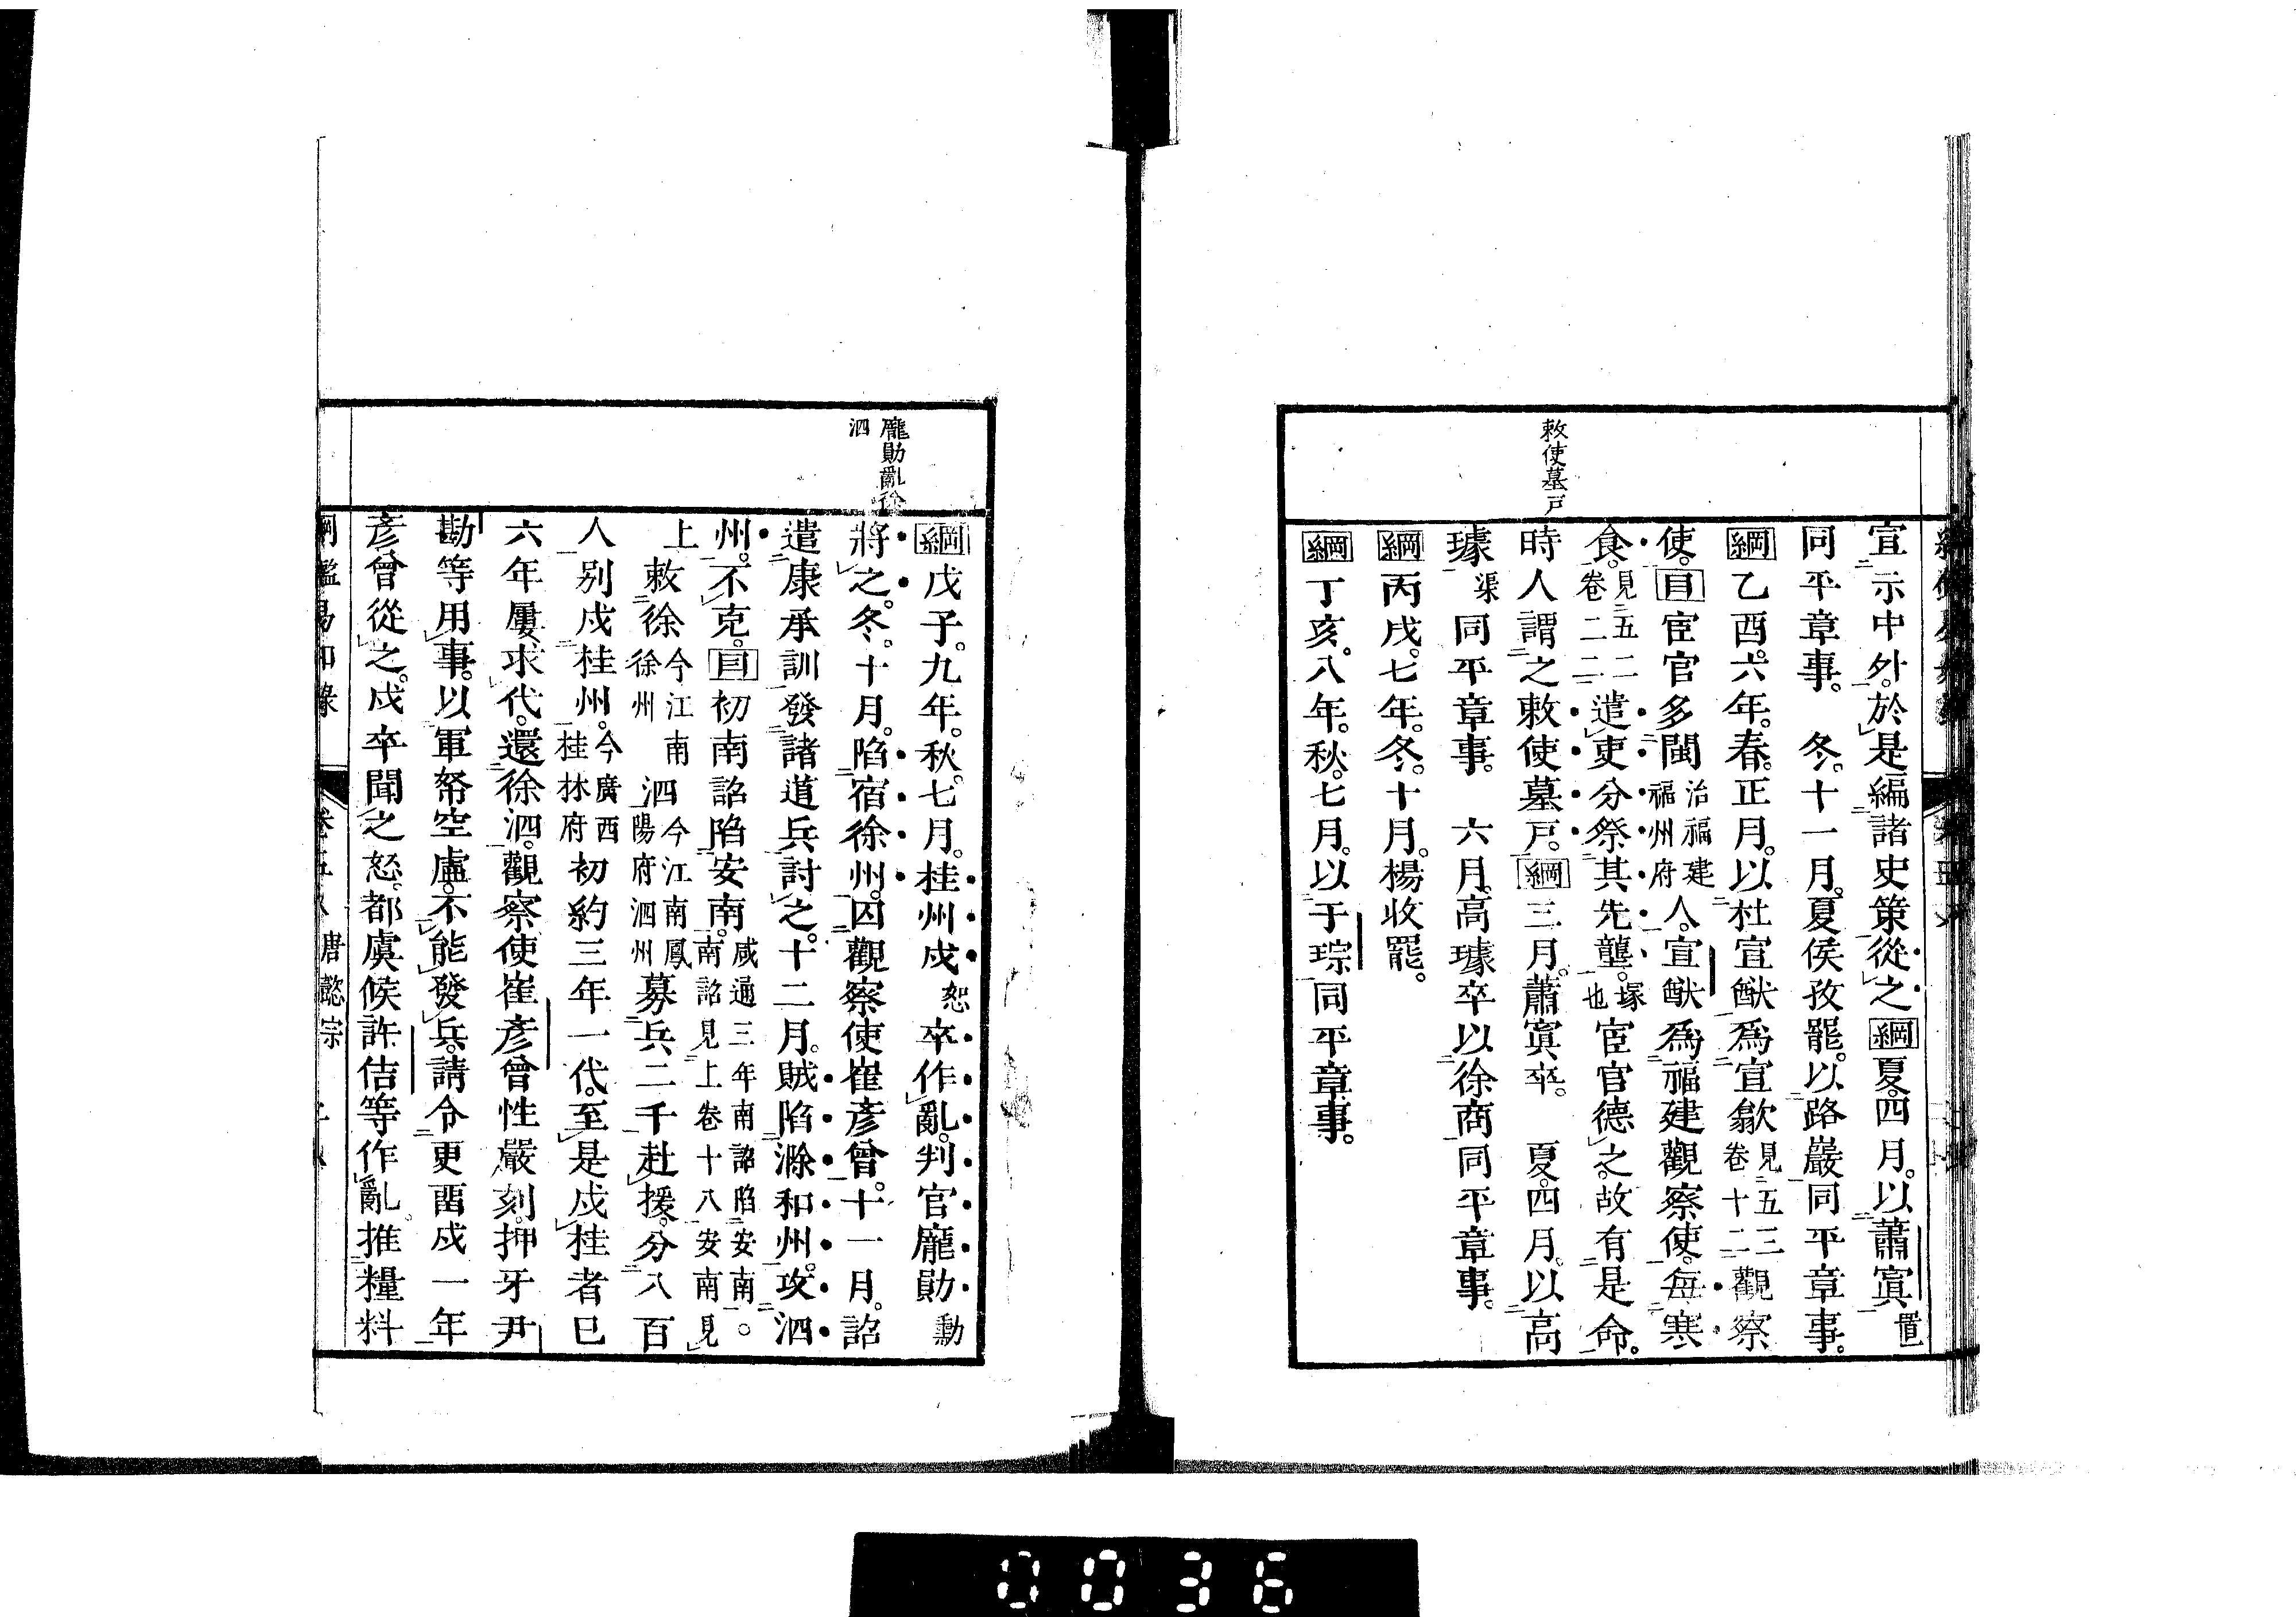 敕使墓戸
宣示中外。於是編諸史策從之綱夏。四月。以蕭寘置
同平章事。冬。十一月。夏侯孜罷。以路巖同平章事。
綱乙酉。六年。春。正月。以杜宣猷爲宣歙見五三卷十二觀察
使。目宦官多閩治福建福州府人。宣猷爲福建觀察使。每寒
食。見五二卷二二遣吏分祭其先壟。塚也宦官德之。故有是命。
時人謂之敕使墓戸。綱三月。蕭寘卒。夏。四月。以高
璩渠同平章事。六月。高璩卒以徐商同平章事。
綱丙戌。七年。冬。十月。楊收罷。
綱丁亥。八年。秋。七月。以于琮同平章事。
龐勛亂徐
泗
綱戊子。九年。秋。七月。桂州戍恕卒作亂。判官龐勛勳
將之。冬。十月。陷宿徐州。囚觀察使崔彥曾。十一月。詔
遣康承訓發諸道兵討之。十二月。賊陷滁和州。攻泗
州。不克。目初南詔陷安南。咸通三年南詔陷安南。南詔見上卷十八安南見
上敕徐今江南徐州泗今江南鳳陽府泗州募兵二千赴援。分八百
人別戍桂州。今廣西桂林府初約三年一代。至是戍桂者已
六年屢求代。還徐泗。觀察使崔彥曾性嚴刻。押牙尹
戡等用事。以軍帑空虛。不能發兵。請令更畱戍一年
彥曾從之。戍卒聞之怒。都虞候許佶等作亂。推糧料
綱鑑易知錄 卷五 唐懿宗
0036